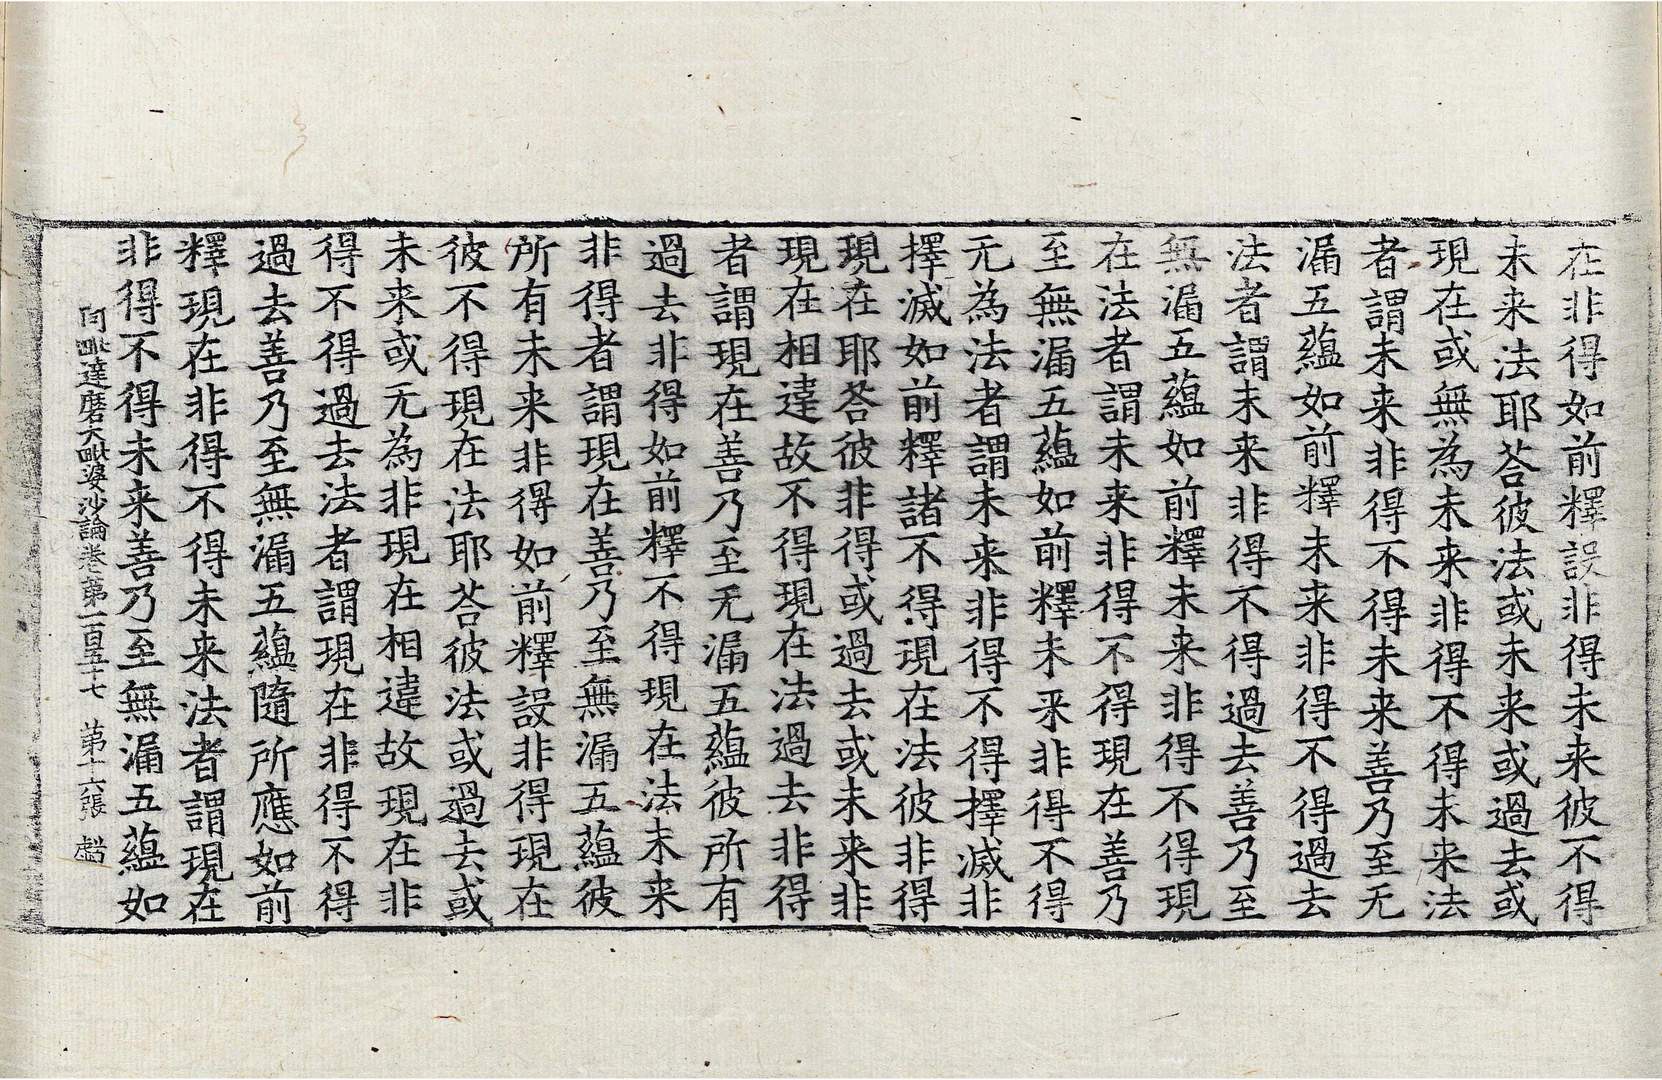 在非得如前釋設非得未来彼不得
未来法耶荅彼法或未来或過去或
現在或無為未来非得不得未来法
者謂未来非得不得未来善乃至无
漏五蘊如前釋未来非得不得過去
法者謂未来非得不得過去善乃至
無漏五蘊如前釋未来非得不得現
在法者謂未来非得不得現在善乃
至無漏五蘊如前釋未来非得不得
无為法者謂未来非得不得擇滅非
擇滅如前釋諸不得現在法彼非得
現在耶荅彼非得或過去或未来非
現在相違故不得現在法過去非得
者謂現在善乃至无漏五蘊彼所有
過去非得如前釋不得現在法未来
非得者謂現在善乃至無漏五蘊彼
所有未来非得如前釋設非得現在
彼不得現在法耶荅彼法或過去或
未来或无為非現在相違故現在非
得不得過去法者謂現在非得不得
過去善乃至無漏五蘊隨所應如前
釋現在非得不得未来法者謂現在
非得不得未来善乃至無漏五蘊如
阿毗達磨大毗婆沙論卷第一百五十七 第十六張